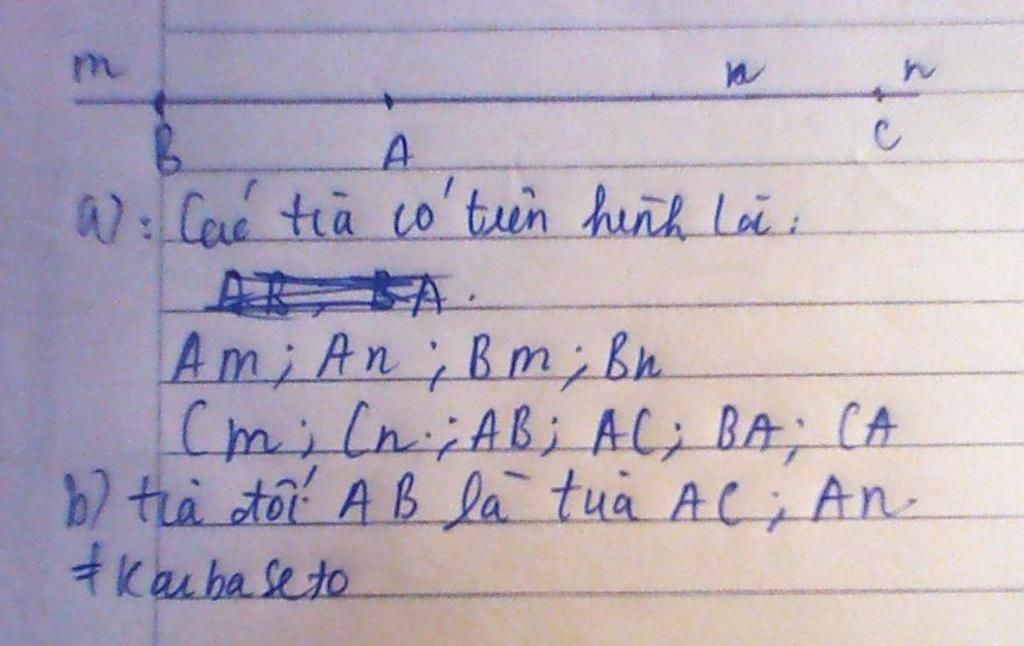 m n n
B A C
a): Các tia có trên hình là:
Am; An; Bm; Bn
Cm; Cn; AB; AC; BA; CA
b) tia đối AB là tia AC; An
#Kaibaseto